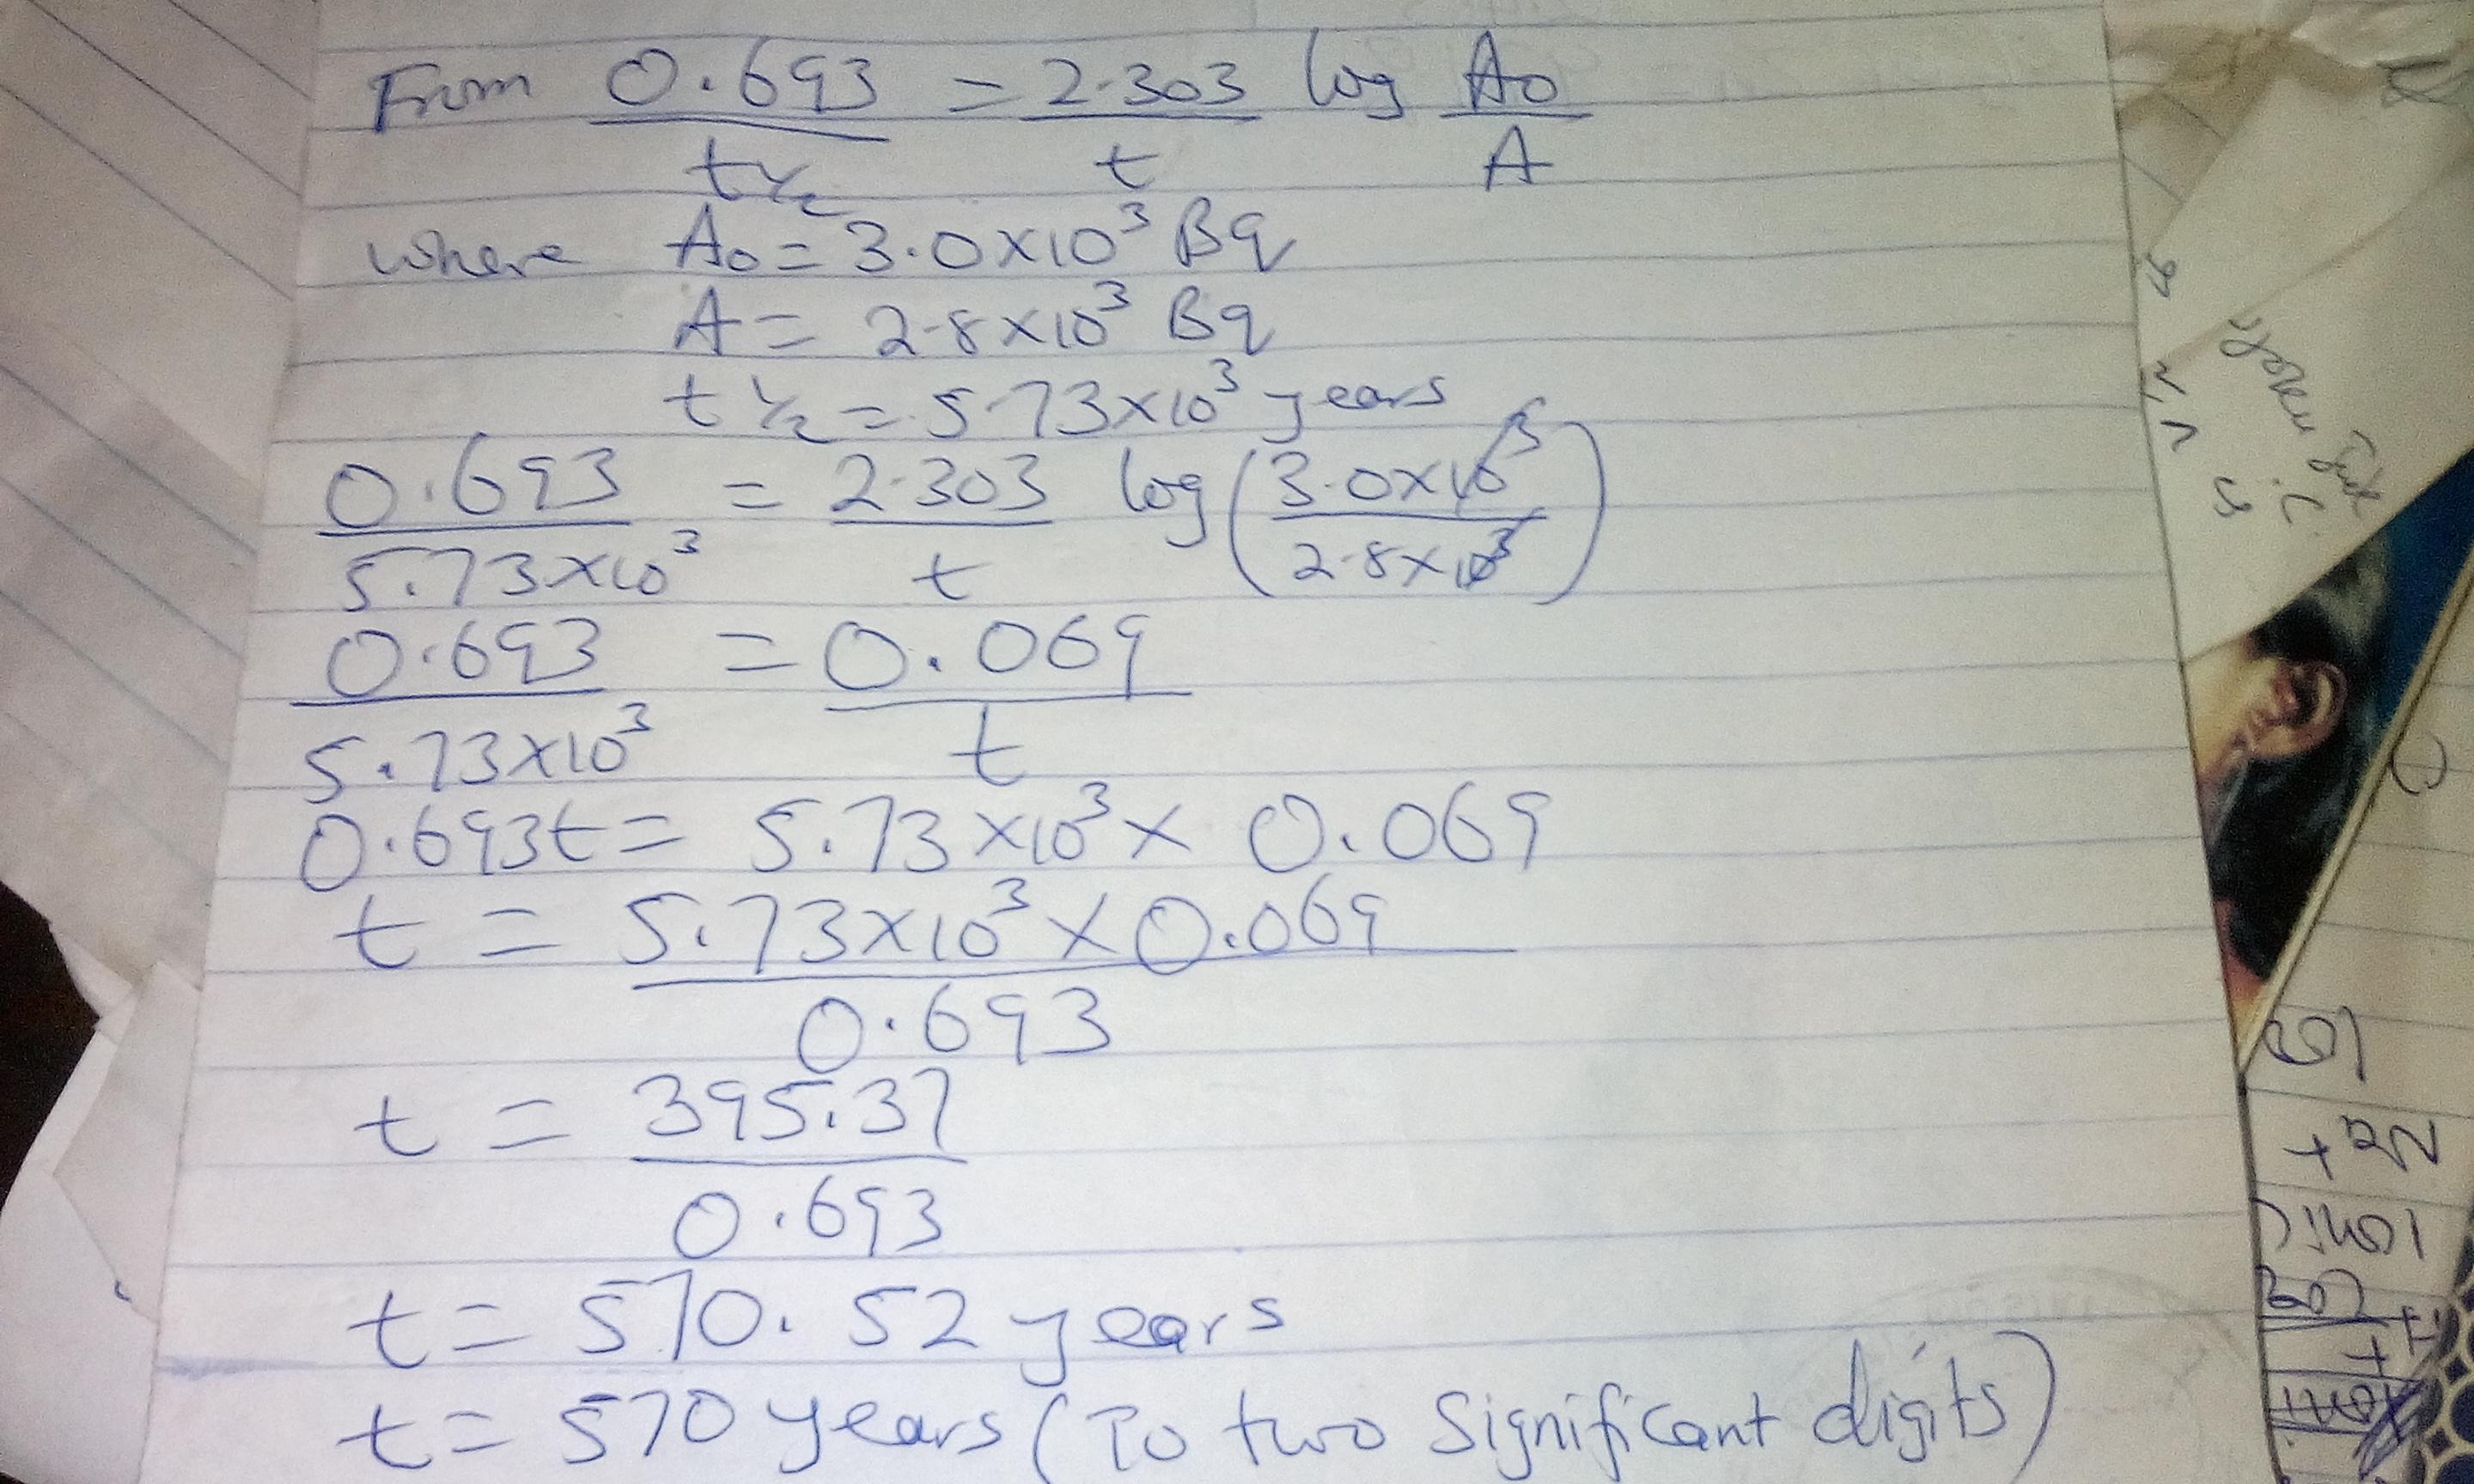 From 0.693 = 2.303 log A₀
t½ t A
where A₀ = 3.0×10³ Bq
A = 2.8×10³ Bq
t½ = 5.73×10³ years
0.693 = 2.303 log (3.0×10³)
5.73×10³ t 2.8×10³
0.693 = 0.069
5.73×10³ t
0.693t = 5.73×10³ × 0.069
t = 5.73×10³ × 0.069
0.693
t = 395.37
0.693
t = 570.52 years
t = 570 years (To two Significant digits)